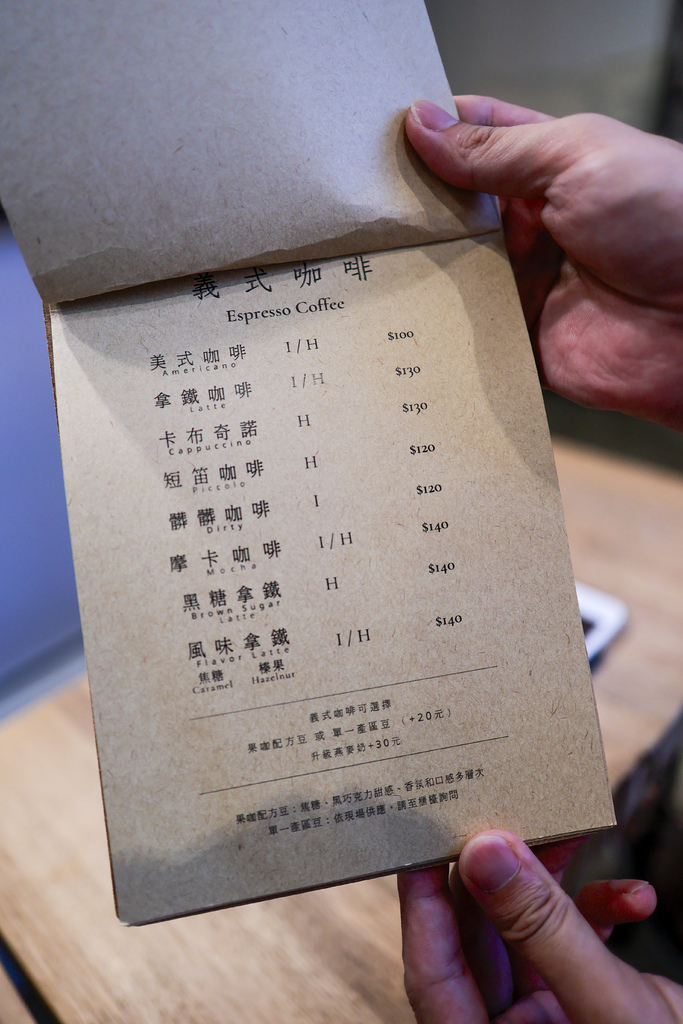 義式咖啡
Espresso Coffee
美式咖啡 I/H $100
Americano
拿鐵咖啡 I/H $130
Latte
卡布奇諾 H $130
Cappuccino
短笛咖啡 H $120
Piccolo
髒髒咖啡 I $120
Dirty
摩卡咖啡 I/H $140
Mocha
黑糖拿鐵 H $140
Brown Sugar
Latte
風味拿鐵 I/H $140
Flavor Latte
焦糖 榛果
Caramel Hazelnut
義式咖啡可選擇
果咖配方豆 或 單一產區豆 (+20元)
升級燕麥奶+30元
果咖配方豆：焦糖、黑巧克力甜感、香氛和口感多層次
單一產區豆：依現場供應，請至櫃檯詢問